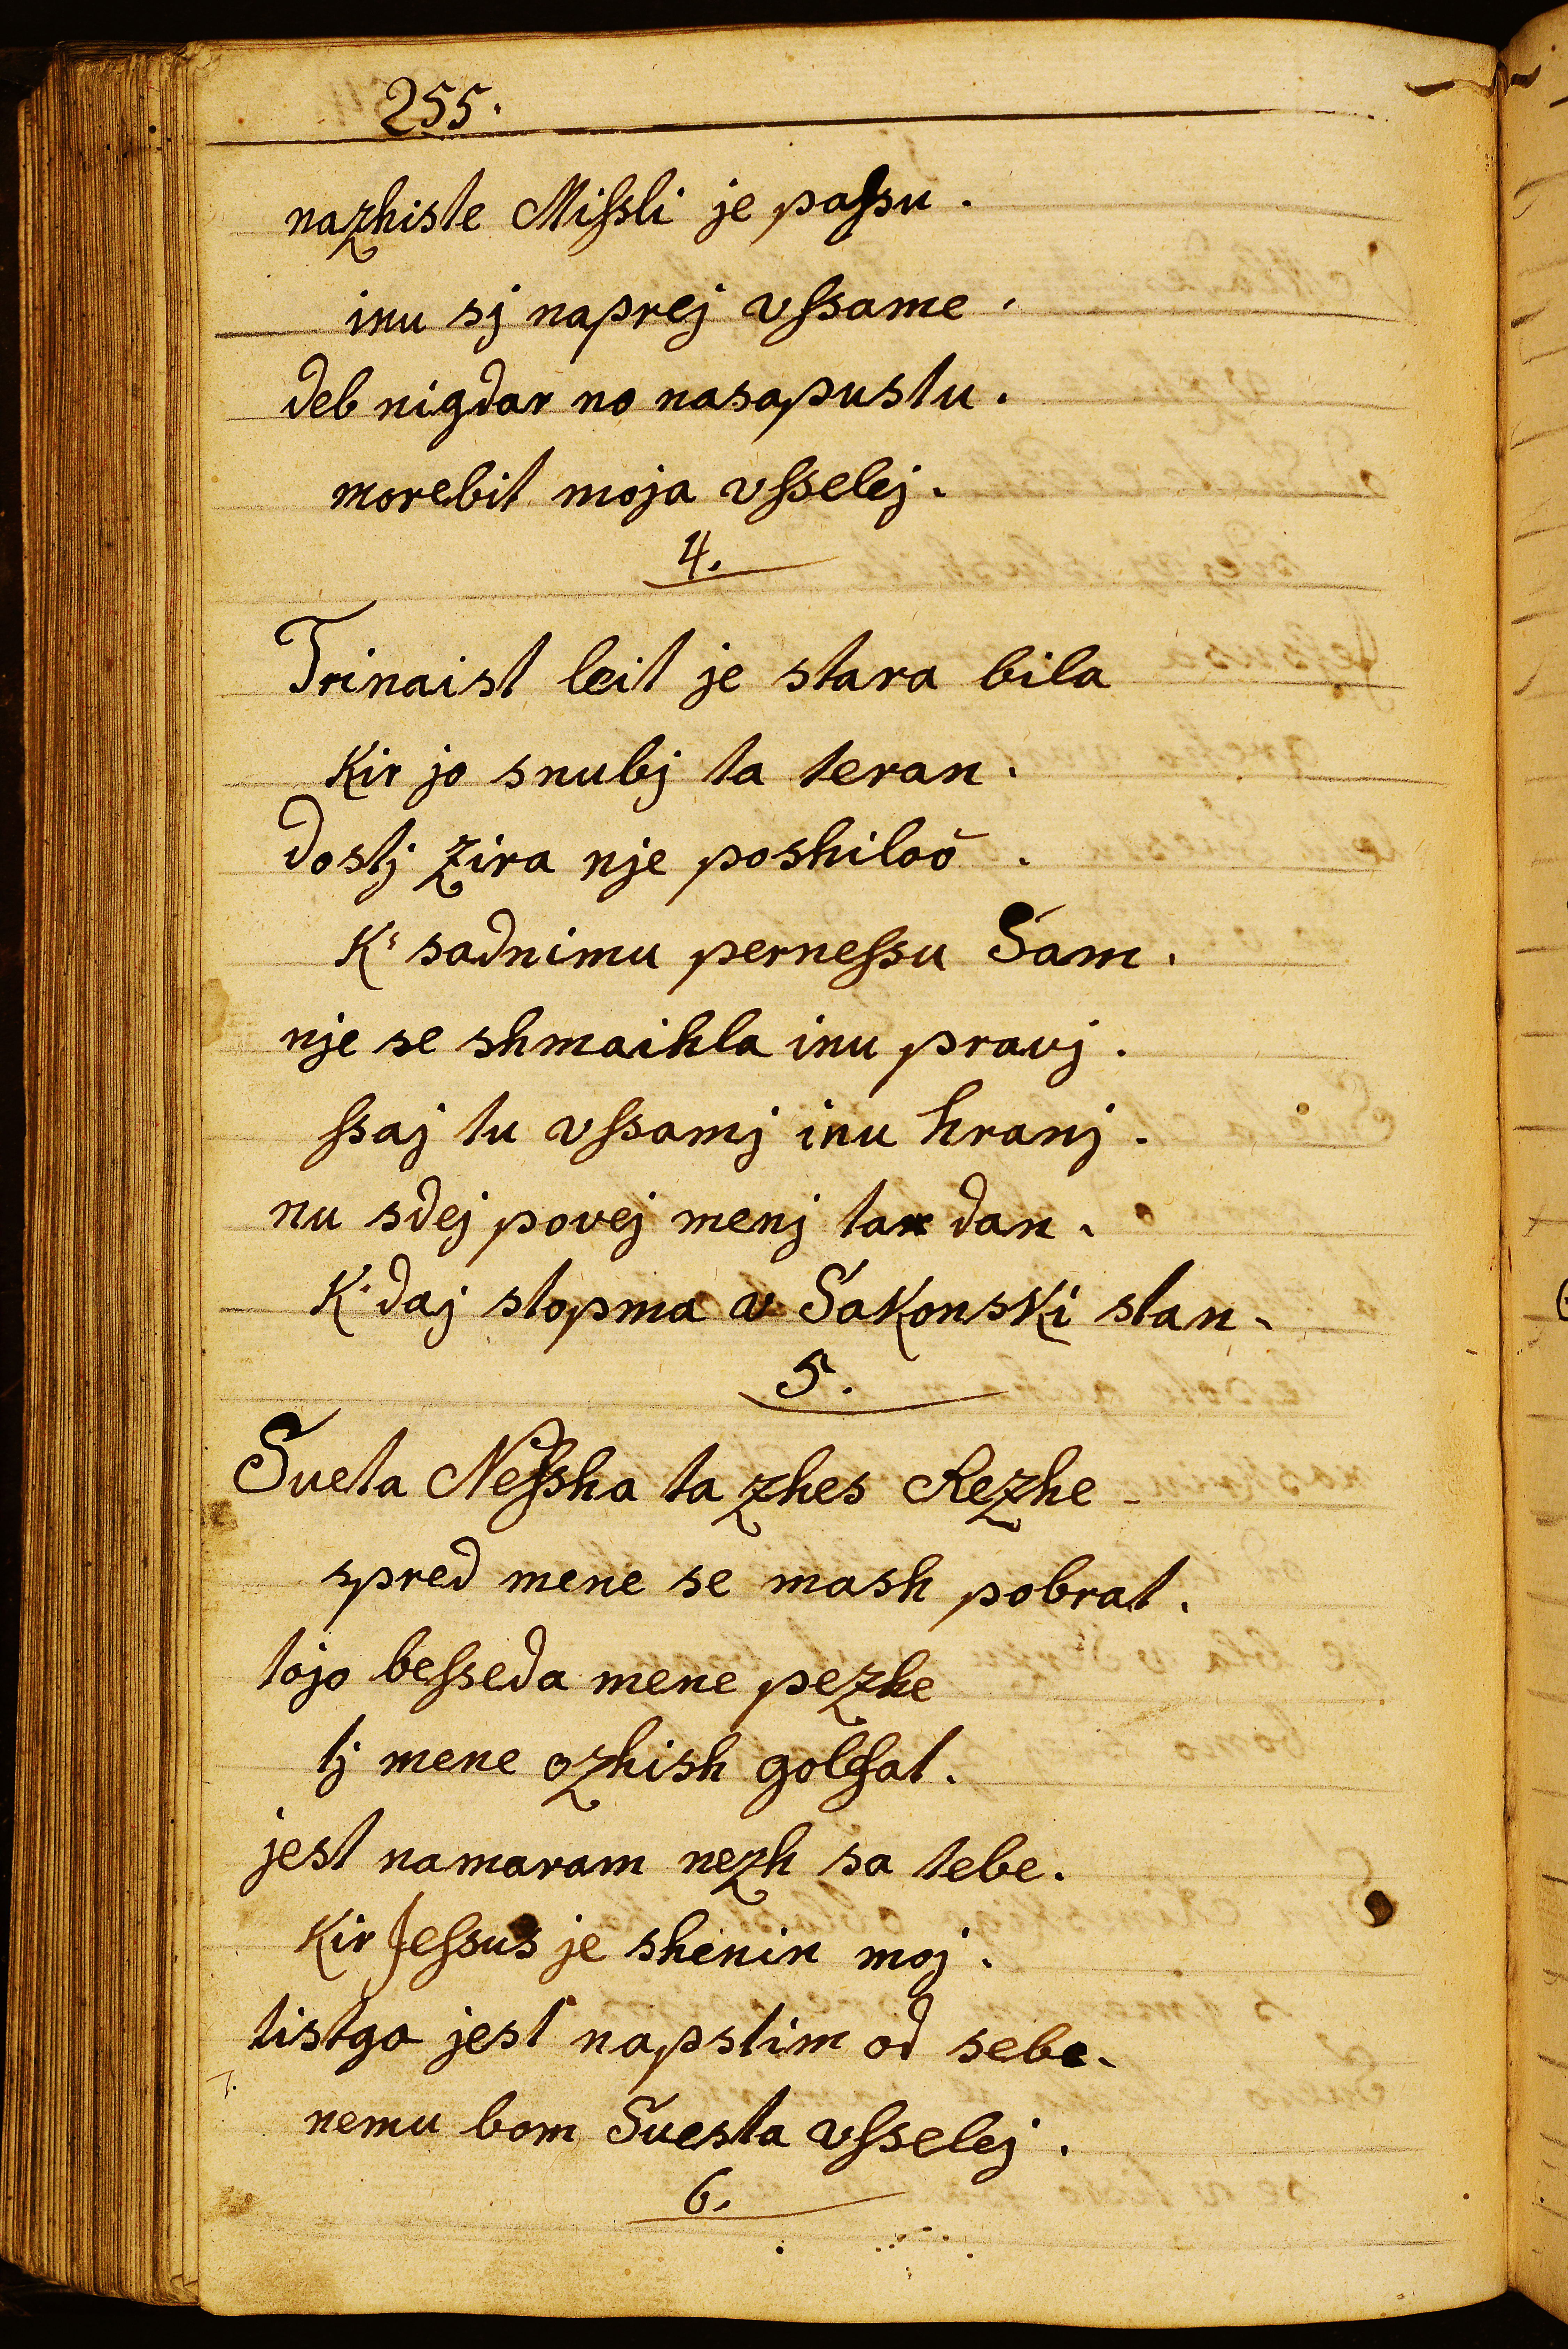 255.
nazhiste Miſsli je paſsu.
inu sj naprej vſsame.
deb nigdar no nasapustu.
morebit moja vſselej.
4.
Trinaist leit je stara bila
Kir jo snubj ta teran.
dostj zira nje poshilaō.
K' sadnimu perneſsu Sam.
nje se shmaihla inu pravj.
ſsaj tu vſsamj inu hranj.
nu sdej povej menj tan dan.
K' daj stopma v SaKonsKi stan.
5.
Sveta Neſsha ta zhes Rezhe
spred mene se mash pobrat.
tojo beſseda mene pezhe
tj mene ozhish golſat.
jest namaram nezh sa tebe.
Kir Jeſsus je shenin moj.
tistga jest napstim od sebe.
nemu bom Svesta vſselej.
6.